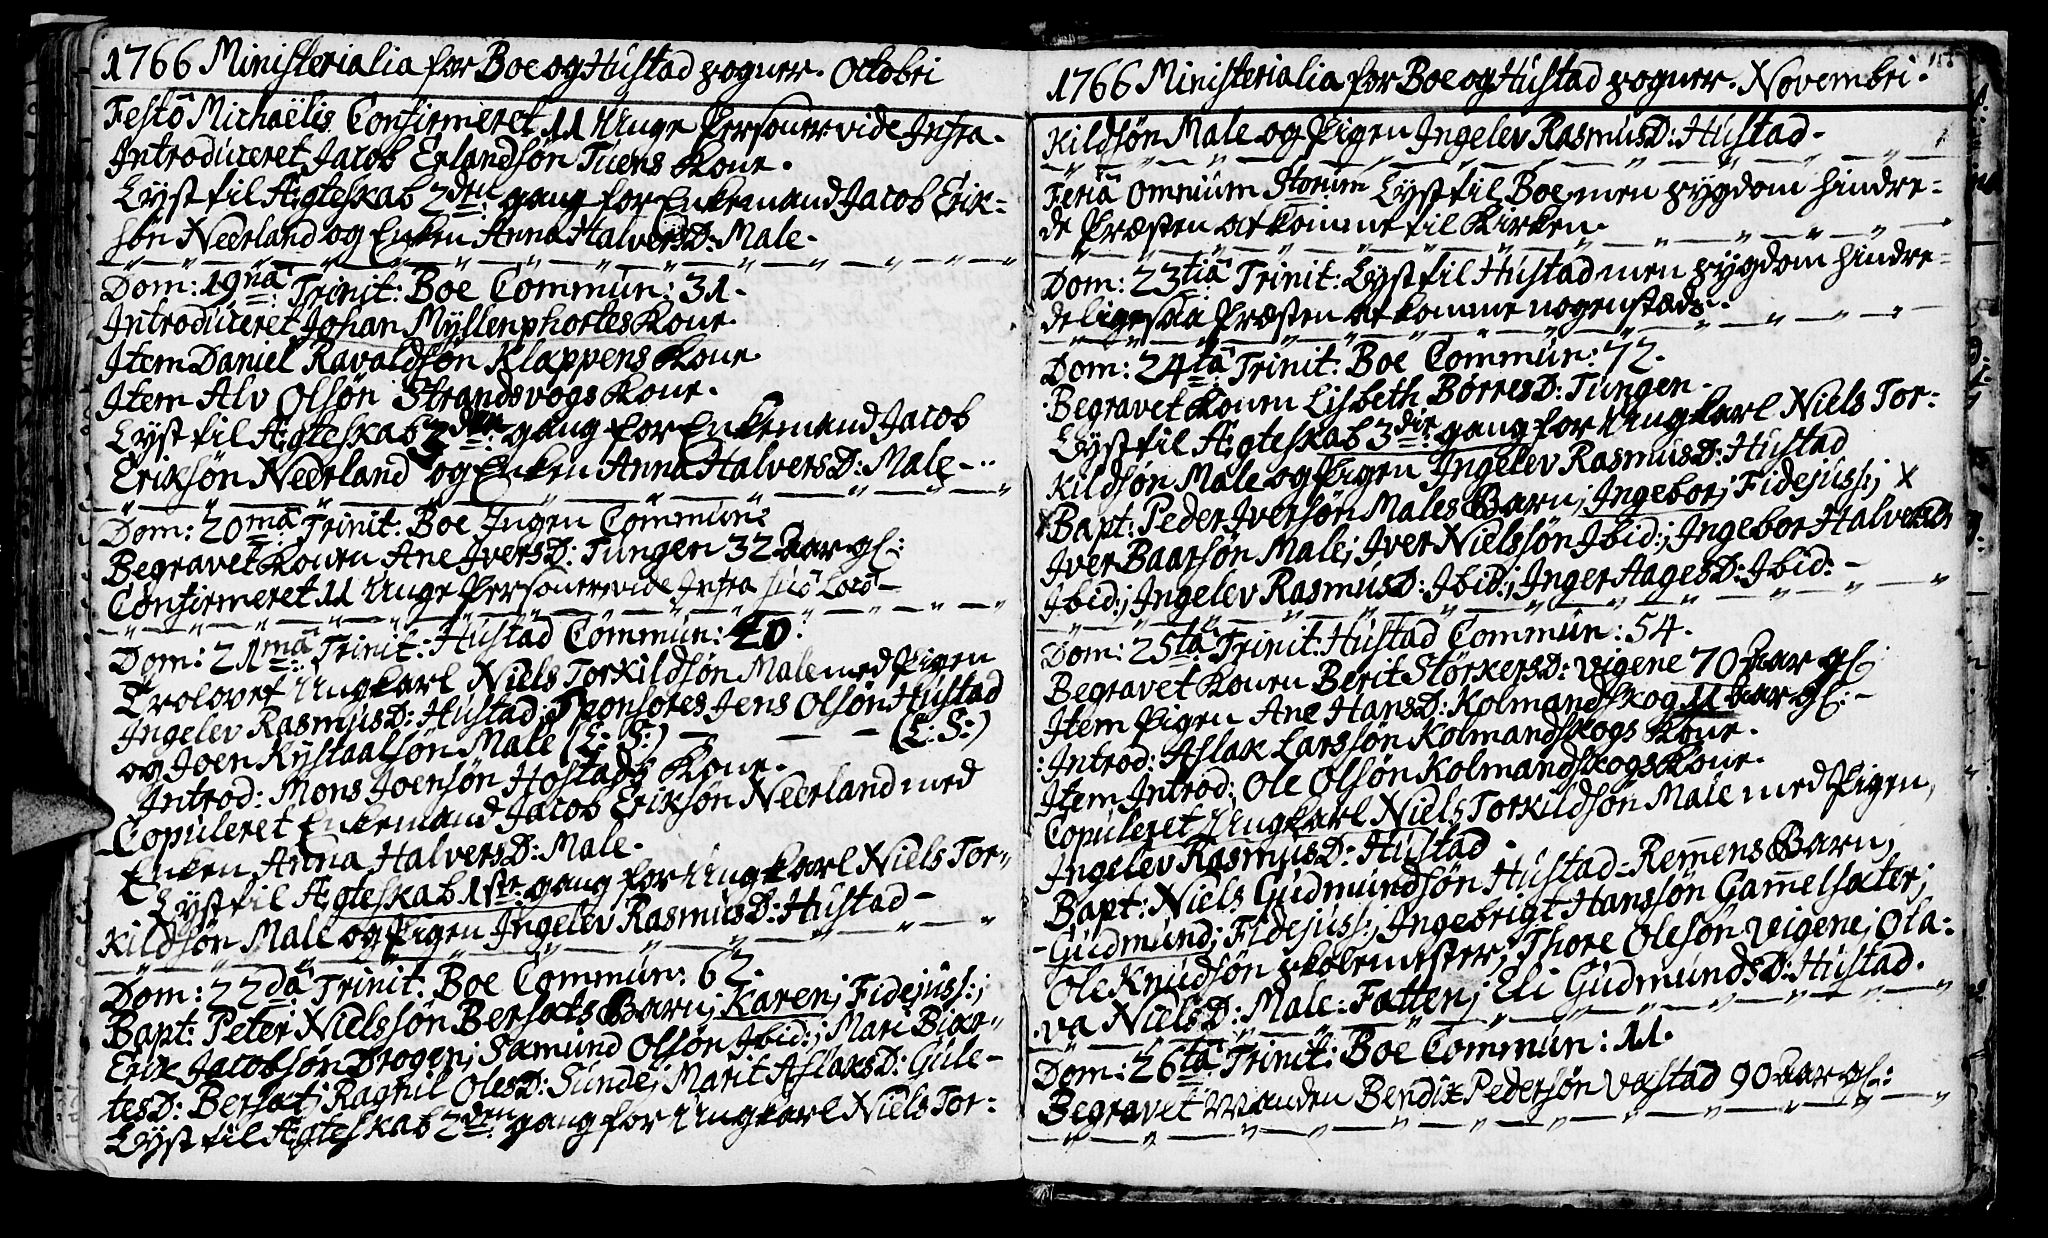 1766 Ministerialia for Boe og Hustad sogner. Octobri
Festo Michaëlis Confirmeret 11 Unge Personer vide Infra.
Introduceret Jacob Erlandsøn Tuens Kone.
Lyst til Ægteskab 2den gang for Enkemand Jacob Erik-
søn Neerland og Enken Anna HalversD: Male.
Dom: 19na Trinit: Boe Commun: 31.
Introduceret Johan Myllenphortes Kone.
Item Daniel Ravaldsøn Klappens Kone
Item Alv Olsøn Strandsvogs Kone.
Lyst til Ægteskab 3die gang for Enkemand Jacob
Eriksøn Neerland og Enken Anna HalversD: Male-
Dom: 20ma Trinit: Boe Ingen Commun:
Begravet Konen Ane IversD: Tungen 32 Aar gl:
Confirmeret 11 Unge Personer vide Infra suo Loco-
Dom: 21ma Trinit: Hustad Commun: 20.
Trolovet Ungkarl Niels Torkildsøn Male med Pigen
Ingelev RasmusD: Hustad; Sponsores Jens Olsøn Hustad
og Joen Rystaalsøn Male (L: S:) - - - (L: S:)
Introd: Mons Joensøn Hostads Kone.
Copuleret Enkemand Jacob Eriksøn Neerland med
Enken Anna HalversD: Male.
Lyst til Ægteskab 1ste gang for Ungkarl Niels Tor-
kildsøn Male og Pigen Ingelev RasmusD: Hustad-
Dom: 22da Trinit: Boe Commun: 62.
Bapt: Peter Nielssøn Bersets Barn; Karen; Fidejuss:;
Erik Jacobsøn Drogen; Samund Olsøn Ibid:; Mari Bior-
tesD: Bersat; Ragnil OlesD: Sunde; Marit AslaksD: Gule-
Lyst til Ægteskab 2den gang for Ungkarl Niels Tor-
1766 Ministerialia for Boe og Hustad sogner. Novembri.
kildsøn Male og Pigen Ingelev RasmusD: Hustad-
Feria Omnium Storum Lyst til Boe, men sygdom hindre-
de Præsten at komme til Kirken.
Dom: 23tia Trinit: Lyst til Hustad men sygdom hindre-
de ligesaa Præsten at komme nogenstæds.
Dom: 24ta Trinit: Boe Commun: 72.
Begravet Konen Lisbeth BørresD: Tungen.
Lyst til Ægteskab 3die gang for Ungkarl Niels Tor-
kildsøn Male og Pigen Ingelev RasmusD: Hustad
Bapt: Peder Iversøn Males Barn; Ingebor; Fidejuss:; x
Iver Baarsøn Male; Iver Nielssøn Ibid:; Ingebor HalversD:
Ibid:; Ingelev RasmusD: Ibid:; Inger AagesD: Ibid:-
Dom: 25ta Trinit: Hustad Commun: 54.
Begravet Konen Berit StørkersD: Vigene 70 Aar gl:
Item Pigen Ane HansD: Kolmandskog 11 Aar gl:-
Introd: Aslak Larssøn Kolmandskogs Kone.
Item Introd: Ole Olsøn Kolmandskogs Kone.
Copuleret Ungkarl Niels Torkildsøn Male med Pigen,
Ingelev RasmusD: Hustad.
Bapt: Niels Gudmundsøn Hustad-Remens Barn;
-Gudmund; Fidejuss:; Ingebrigt Hanssøn Gamelsæter;
Ole Knudsøn skolemester; Thore Olesøn Vigene; Ola-
va NielsD: Male-Fatten; Eli GudmundsD: Hustad.
Dom: 26ta Trinit: Boe Commun: 11.
Begravet Manden Bendix Pedersøn Vastad 90 Aar gl: